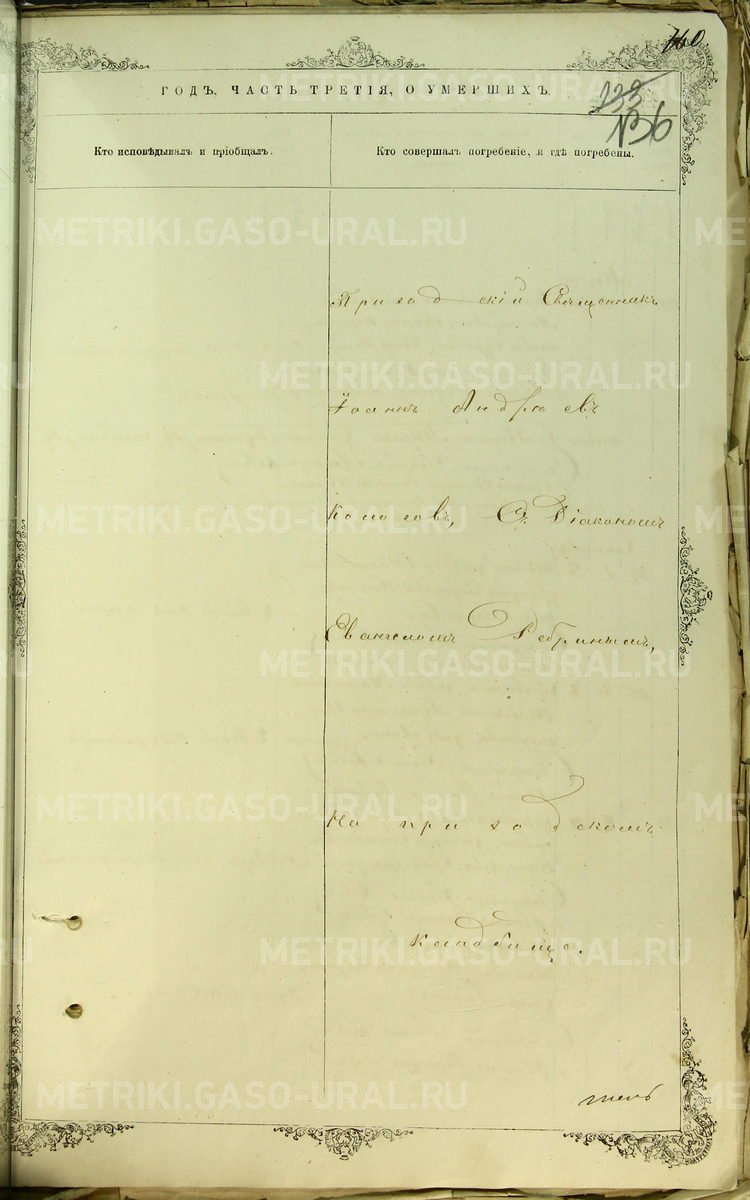 160
133
№36
ГОДЪ, ЧАСТЬ ТРЕТІЯ, О УМЕРШИХЪ.
Кто исповѣдывалъ и пріобщалъ.
Кто совершалъ погребеніе, и гдѣ погребены.
Приходскій Священникъ
Іоаннъ Андреевъ
съ Діакономъ
Евангеломъ Ребринымъ,
На приходскомъ
кладбище.
METRIKI.GASO-URAL.RU